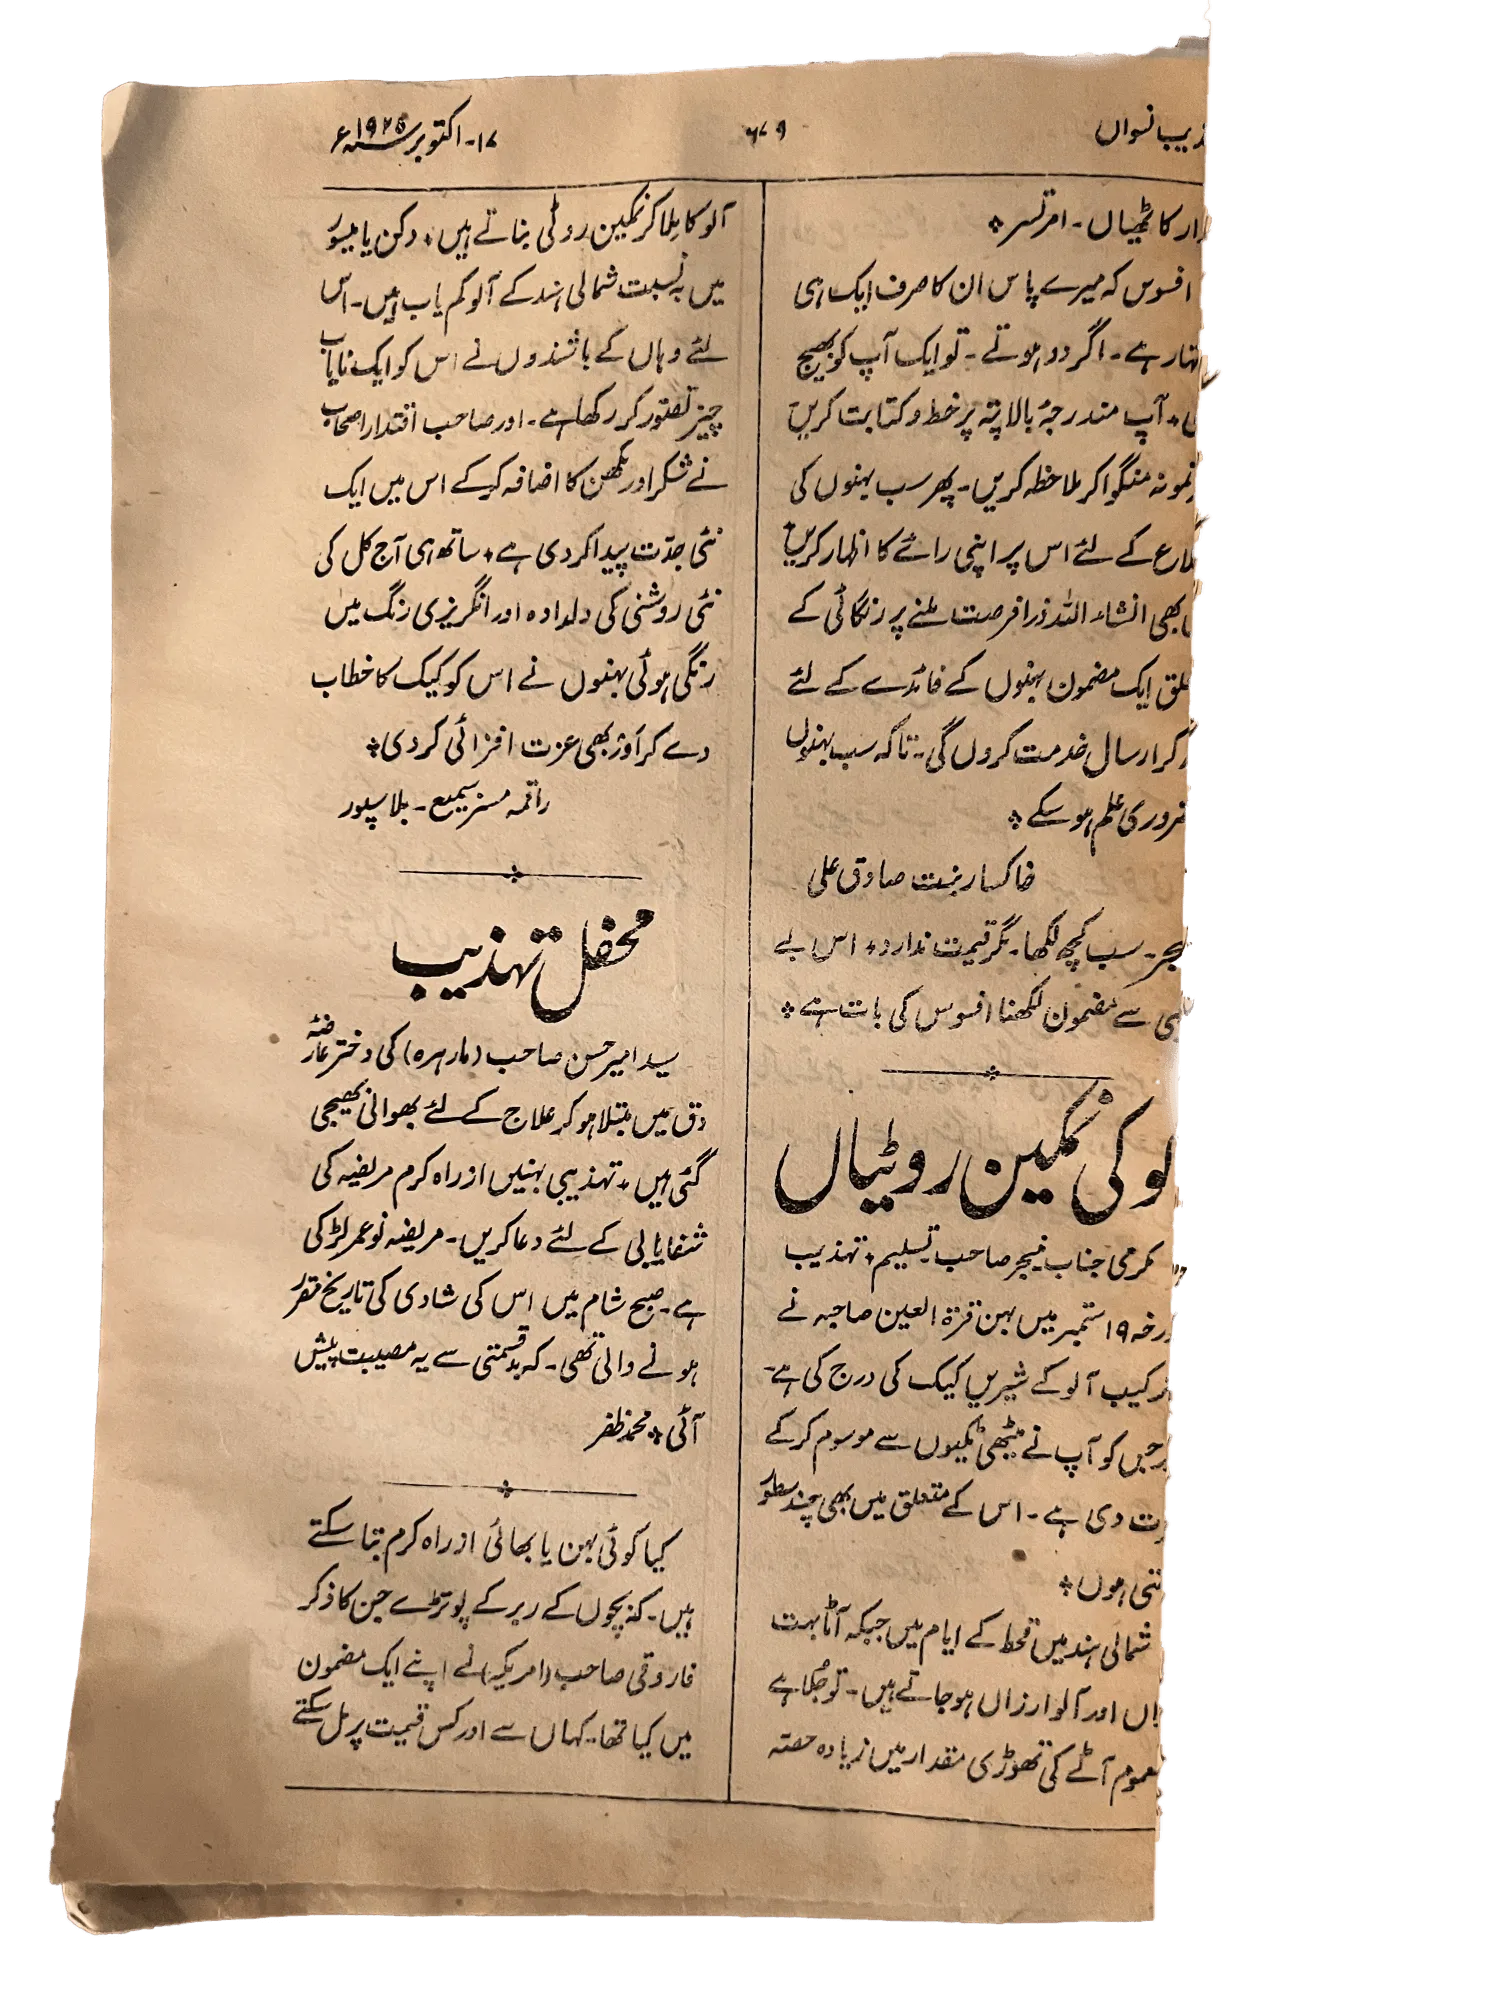 تہذیب نسواں
۶۷۹
۱۷- اکتوبر سنہ ۱۹۲۵ء
کاٹھیاں - امرتسر *
افسوس کہ میرے پاس ان کا صرف ایک ہی
ہے - اگر دو ہوتے - تو ایک آپ کو بھیج
آپ مندرجۂ بالا پتہ پر خط و کتابت کریں
نمونہ منگوا کر ملاحظہ کریں - پھر سب بہنوں کی
کے لئے اس پر اپنی رائے کا اظہار کریں
بھی انشاء اللہ ذرا فرصت ملنے پر رنگائی کے
ایک مضمون بہنوں کے فائدے کے لئے
کر ارسال خدمت کروں گی - تاکہ سب بہنوں
ضروری علم ہو سکے *
خاکسار بنت صادق علی
سب کچھ لکھا - مگر قیمت ندارد * اس بے
سے مضمون لکھنا افسوس کی بات ہے *
لو کی نمکین روٹیاں
مکرمی جناب منیجر صاحب - تسلیم * تہذیب
۱۹ ستمبر میں بہن قرۃ العین صاحبہ نے
ترکیب آلو کے شیریں کیک کی درج کی ہے -
جس کو آپ نے میٹھی ٹکیوں سے موسوم کر کے
دی ہے - اس کے متعلق میں بھی چند سطور
ہوں *
شمالی ہند میں قحط کے ایام میں جبکہ آٹا بہت
اور آلو ارزاں ہو جاتے ہیں - تو
آٹے کی تھوڑی مقدار میں زیادہ حصتہ
آلو کا ملا کر نمکین روٹی بناتے ہیں * دکن یا میسور
میں بہ نسبت شمالی ہند کے آلو کم یاب ہیں - اس
لئے وہاں کے باشندوں نے اس کو ایک نایاب
چیز تصوّر کر رکھا ہے - اور صاحب اقتدار اصحاب
نے شکر اور مکھن کا اضافہ کر کے اس میں ایک
نئی جدّت پیدا کر دی ہے * ساتھ ہی آج کل کی
نئی روشنی کی دلدادہ اور انگریزی رنگ میں
رنگی ہوئی بہنوں نے اس کو کیک کا خطاب
دے کر اَور بھی عزت افزائی کر دی *
راقمہ مسز سمیع - بلاسپور
محفل تہذیب
سید امیر حسن صاحب (مارہرہ) کی دختر عارضۂ
دق میں مبتلا ہو کر علاج کے لئے بھوالی بھیجی
گئی ہیں * تہذیبی بہنیں از راہ کرم مریضہ کی
شفایابی کے لئے دعا کریں - مریضہ نو عمر لڑکی
ہے - صبح شام میں اس کی شادی کی تاریخ مقرر
ہونے والی تھی - کہ بد قسمتی سے یہ مصیبت پیش
آئی * محمد ظفر
کیا کوئی بہن یا بھائی از راہ کرم بتا سکتے
ہیں - کہ بچوں کے ربر کے پوتڑے جن کا ذکر
فاروقی صاحب (امریکہ) نے اپنے ایک مضمون
میں کیا تھا - کہاں سے اور کس قیمت پر مل سکتے